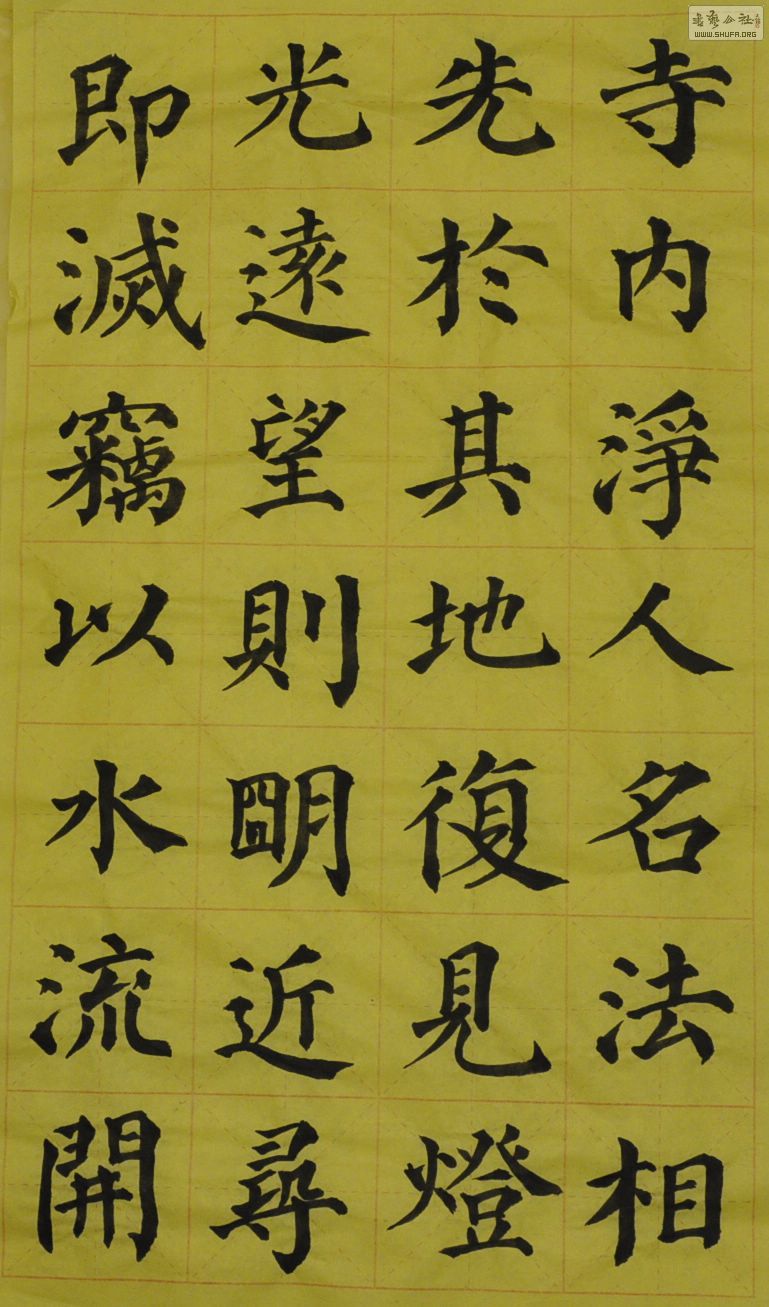 寺内淨人名法相
先於其地復見燈
光遠望則明近尋
即滅竊以水流開
WWW.SHUFA.ORG